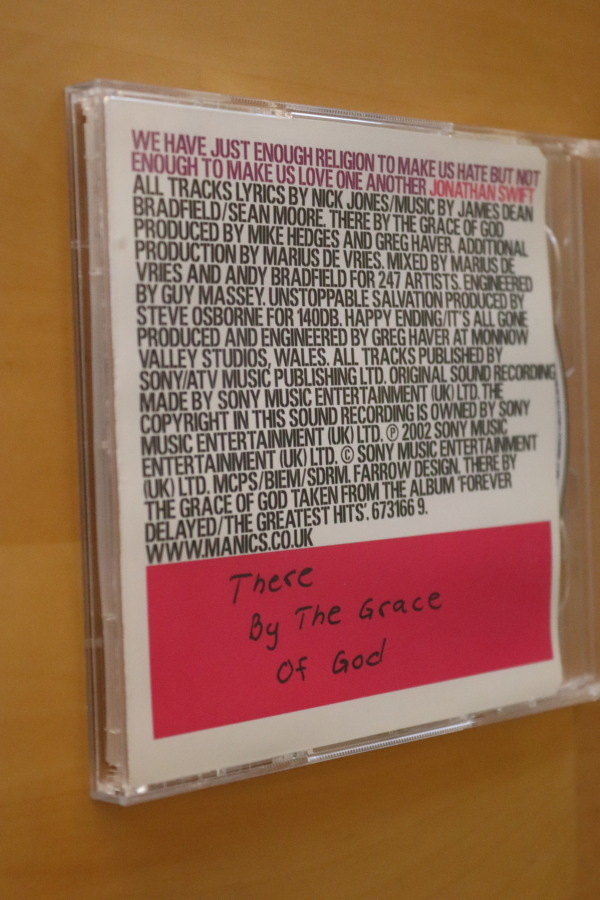 WE HAVE JUST ENOUGH RELIGION TO MAKE US HATE BUT NOT
ENOUGH TO MAKE US LOVE ONE ANOTHER JONATHAN SWIFT
ALL TRACKS LYRICS BY NICK JONES/MUSIC BY JAMES DEAN
BRADFIELD/SEAN MOORE. THERE BY THE GRACE OF GOD
PRODUCED BY MIKE HEDGES AND GREG HAVER. ADDITIONAL
PRODUCTION BY MARIUS DE VRIES. MIXED BY MARIUS DE
VRIES AND ANDY BRADFIELD FOR 247 ARTISTS. ENGINEERED
BY GUY MASSEY. UNSTOPPABLE SALVATION PRODUCED BY
STEVE OSBORNE FOR 140DB. HAPPY ENDING/IT'S ALL GONE
PRODUCED AND ENGINEERED BY GREG HAVER AT MONNOW
VALLEY STUDIOS, WALES. ALL TRACKS PUBLISHED BY
SONY/ATV MUSIC PUBLISHING LTD. ORIGINAL SOUND RECORDING
MADE BY SONY MUSIC ENTERTAINMENT (UK) LTD. THE
COPYRIGHT IN THIS SOUND RECORDING IS OWNED BY SONY
MUSIC ENTERTAINMENT (UK) LTD. ℗ 2002 SONY MUSIC
ENTERTAINMENT (UK) LTD. © SONY MUSIC ENTERTAINMENT
(UK) LTD. MCPS/BIEM/SDRM. FARROW DESIGN. THERE BY
THE GRACE OF GOD TAKEN FROM THE ALBUM 'FOREVER
DELAYED/THE GREATEST HITS'. 673166 9.
WWW.MANICS.CO.UK
There
By The Grace
Of God